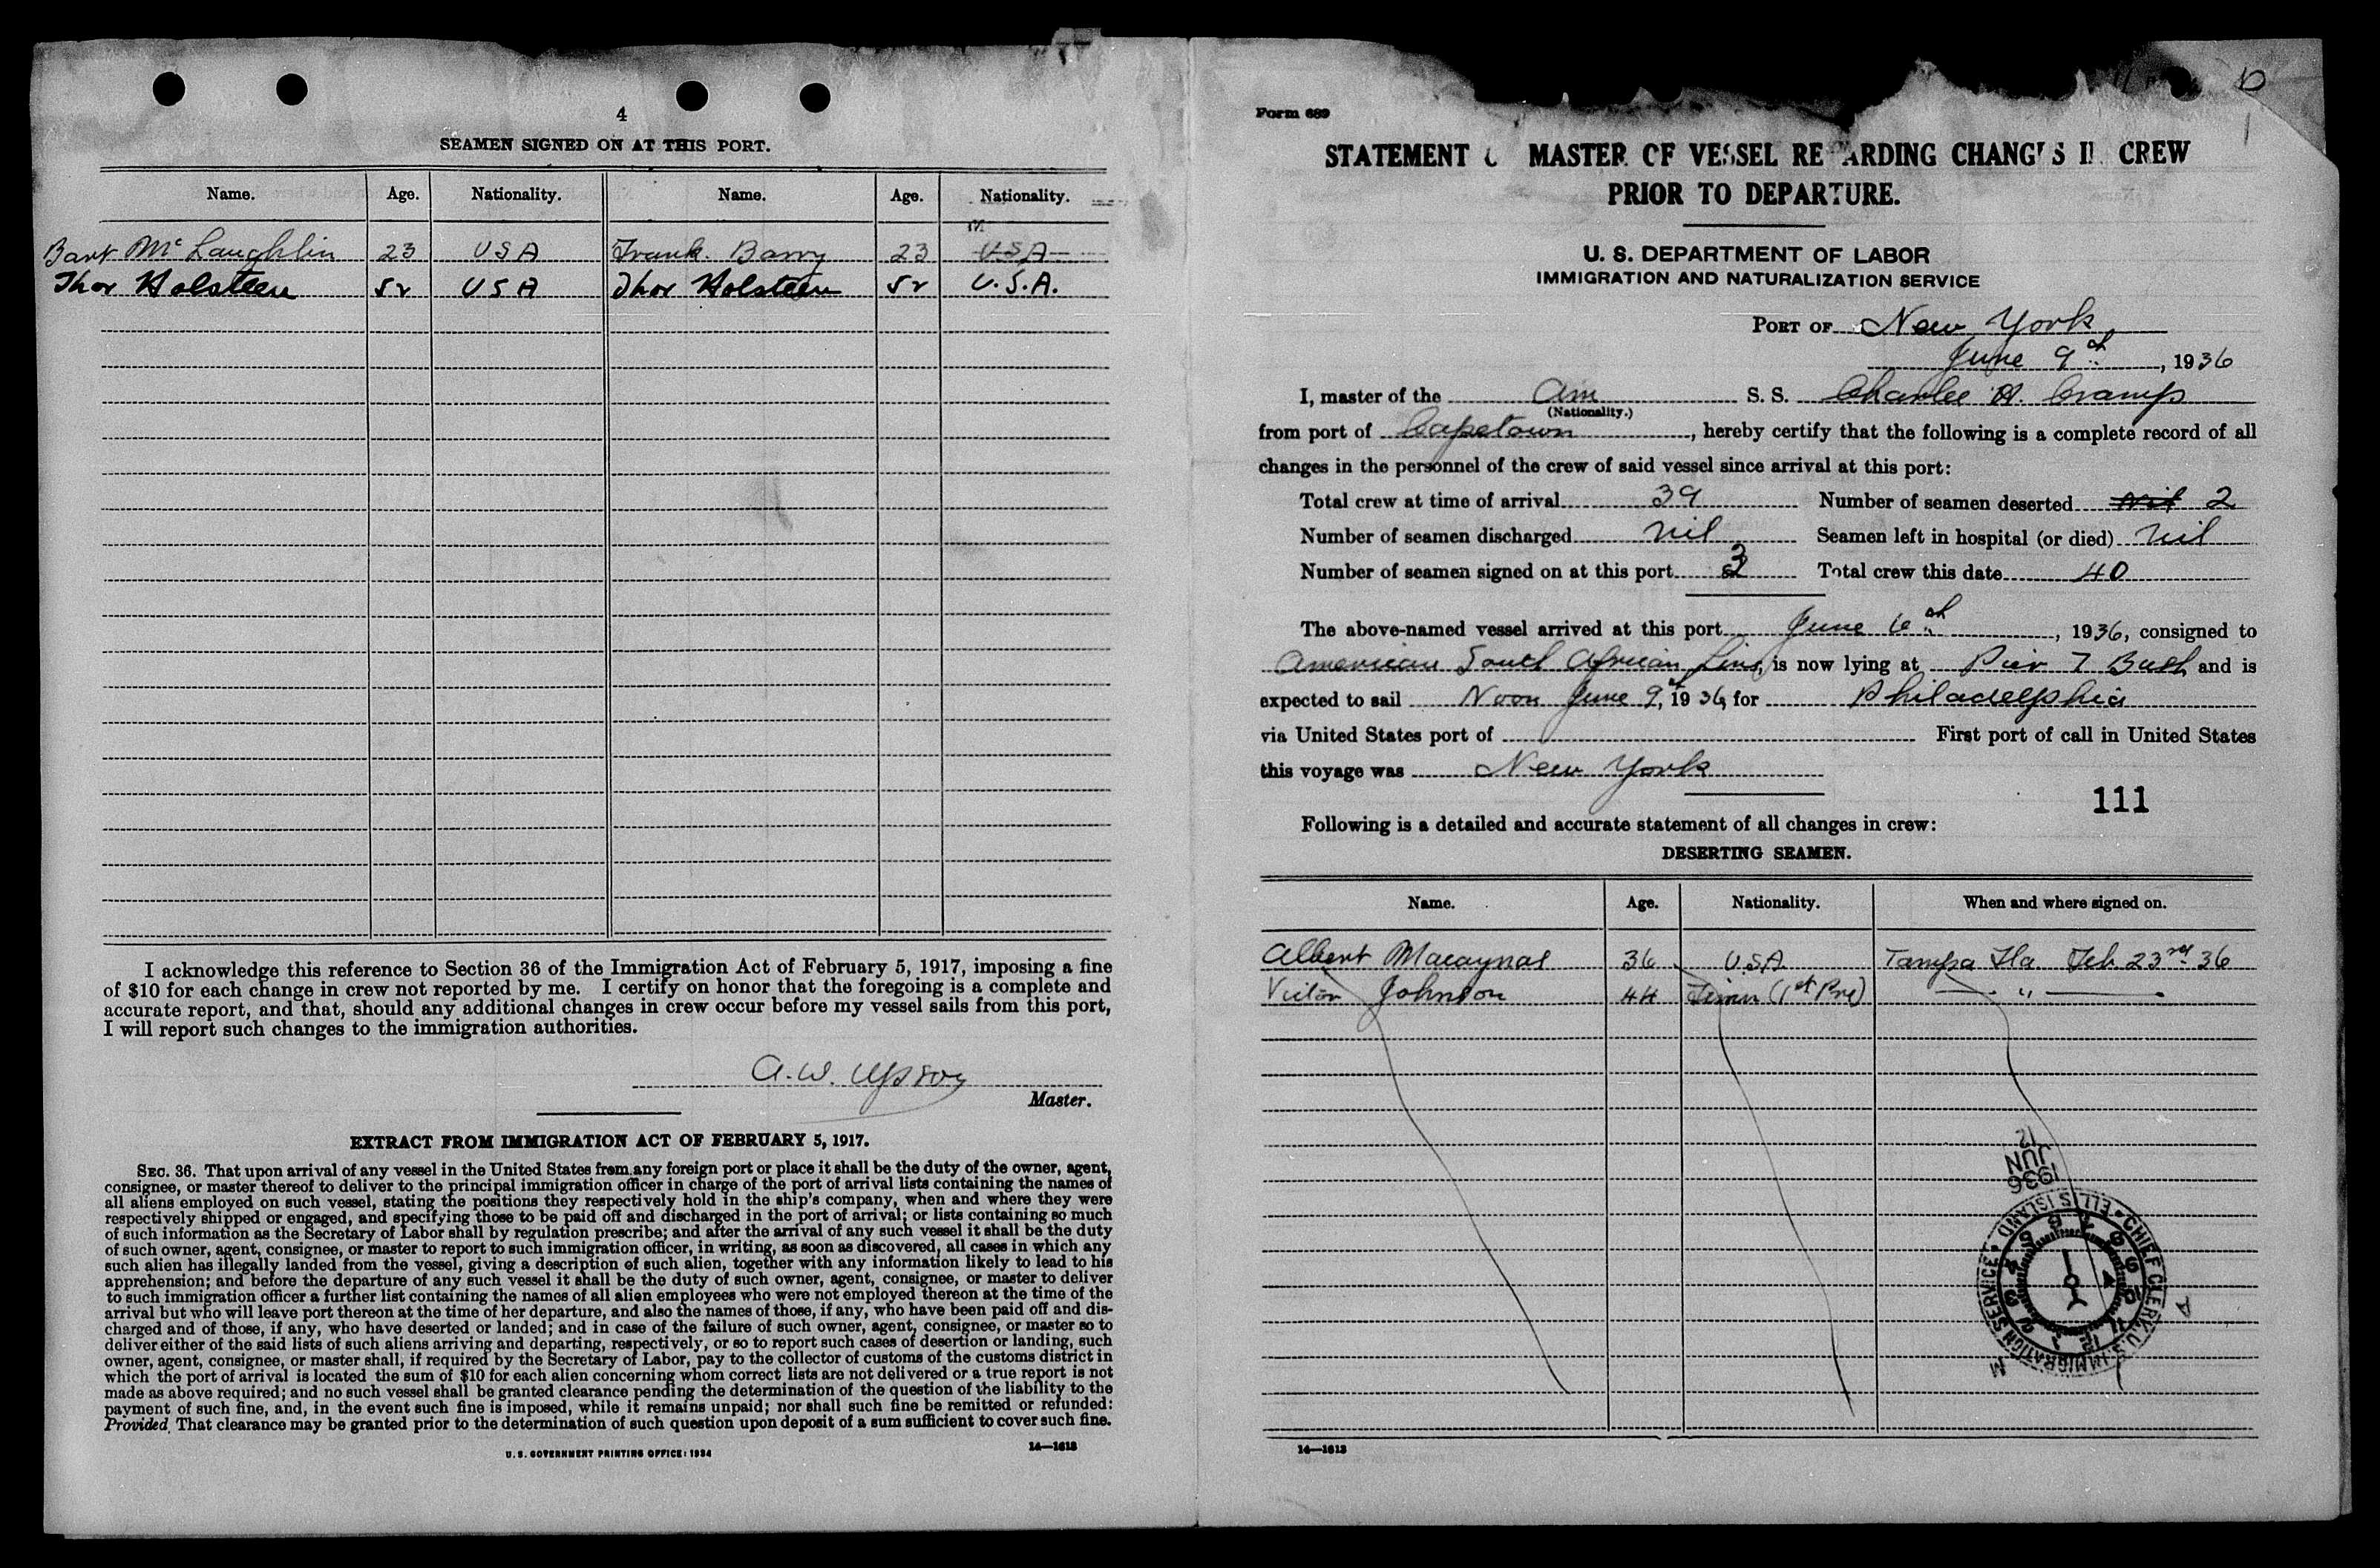 4
SEAMEN SIGNED ON AT THIS PORT.
Name. Age. Nationality. Name. Age. Nationality.
Bart McLaughlin 23 USA Frank Barry 23 USA
Thor Holsteen 52 USA Thor Holsteen 52 U.S.A.
I acknowledge this reference to Section 36 of the Immigration Act of February 5, 1917, imposing a fine
of $10 for each change in crew not reported by me. I certify on honor that the foregoing is a complete and
accurate report, and that, should any additional changes in crew occur before my vessel sails from this port,
I will report such changes to the immigration authorities.
A. W.
Master.
EXTRACT FROM IMMIGRATION ACT OF FEBRUARY 5, 1917.
SEC. 36. That upon arrival of any vessel in the United States from any foreign port or place it shall be the duty of the owner, agent,
consignee, or master thereof to deliver to the principal immigration officer in charge of the port of arrival lists containing the names of
all aliens employed on such vessel, stating the positions they respectively hold in the ship's company, when and where they were
respectively shipped or engaged, and specifying those to be paid off and discharged in the port of arrival; or lists containing so much
of such information as the Secretary of Labor shall by regulation prescribe; and after the arrival of any such vessel it shall be the duty
of such owner, agent, consignee, or master to report to such immigration officer, in writing, as soon as discovered, all cases in which any
such alien has illegally landed from the vessel, giving a description of such alien, together with any information likely to lead to his
apprehension; and before the departure of any such vessel it shall be the duty of such owner, agent, consignee, or master to deliver
to such immigration officer a further list containing the names of all alien employees who were not employed thereon at the time of the
arrival but who will leave port thereon at the time of her departure, and also the names of those, if any, who have been paid off and dis-
charged and of those, if any, who have deserted or landed; and in case of the failure of such owner, agent, consignee, or master so to
deliver either of the said lists of such aliens arriving and departing, respectively, or so to report such cases of desertion or landing, such
owner, agent, consignee, or master shall, if required by the Secretary of Labor, pay to the collector of customs of the customs district in
which the port of arrival is located the sum of $10 for each alien concerning whom correct lists are not delivered or a true report is not
made as above required; and no such vessel shall be granted clearance pending the determination of the question of the liability to the
payment of such fine, and, in the event such fine is imposed, while it remains unpaid; nor shall such fine be remitted or refunded:
Provided, That clearance may be granted prior to the determination of such question upon deposit of a sum sufficient to cover such fine.
U. S. GOVERNMENT PRINTING OFFICE: 1934 14—1613
Form 689
STATEMENT O MASTER OF VESSEL REGARDING CHANGES IN CREW
PRIOR TO DEPARTURE.
U. S. DEPARTMENT OF LABOR
IMMIGRATION AND NATURALIZATION SERVICE
PORT OF New York,
June 9th, 1936
I, master of the Am S. S. Charles H. Cramp
(Nationality.)
from port of Capetown, hereby certify that the following is a complete record of all
changes in the personnel of the crew of said vessel since arrival at this port:
Total crew at time of arrival 39 Number of seamen deserted nil 2
Number of seamen discharged nil Seamen left in hospital (or died) nil
Number of seamen signed on at this port 3 Total crew this date 40
The above-named vessel arrived at this port June 6th, 1936, consigned to
American South African Line, is now lying at Pier 7 Bush and is
expected to sail Noon June 9th, 1936, for Philadelphia
via United States port of First port of call in United States
this voyage was New York
111
Following is a detailed and accurate statement of all changes in crew:
DESERTING SEAMEN.
Name. Age. Nationality. When and where signed on.
Albert Macaynas 36 USA Tampa Fla. Feb 23rd 36
Victor Johnson 44 Finn (1st Pre) "
12
JUN
1936
CHIEF CLERK, U.S. IMMIGRATION SERVICE • ELLIS ISLAND
14—1613